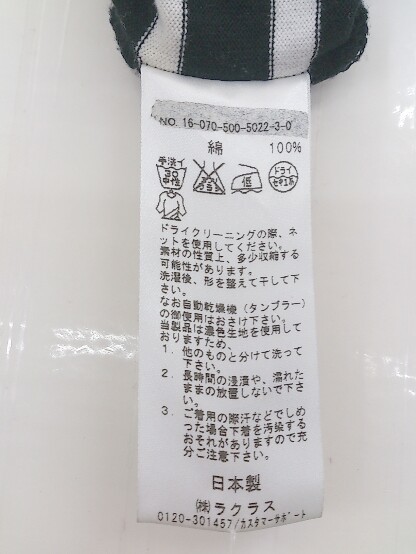 NO. 16-070-500-5022-3-0
綿 100%
手洗イ
30
中性
エンソ
サラシ
低
ドライ
セキユ系
ドライクリーニングの際、ネ
ットを使用してください。
素材の性質上、多少収縮する
可能性があります。
洗濯後、形を整えて干して下
さい。
なお自動乾燥機（タンブラー）
の御使用はおさけ下さい。
当製品は濃色生地を使用して
おりますため、
1. 他のものと分けて洗って
下さい。
2. 長時間の浸漬や、濡れた
ままの放置しないで下さ
い。
3. ご着用の際汗などでしめ
った場合下着を汚染する
おそれがありますので充
分ご注意下さい。
日本製
(株)ラクラス
0120-301457/カスタマーサポート